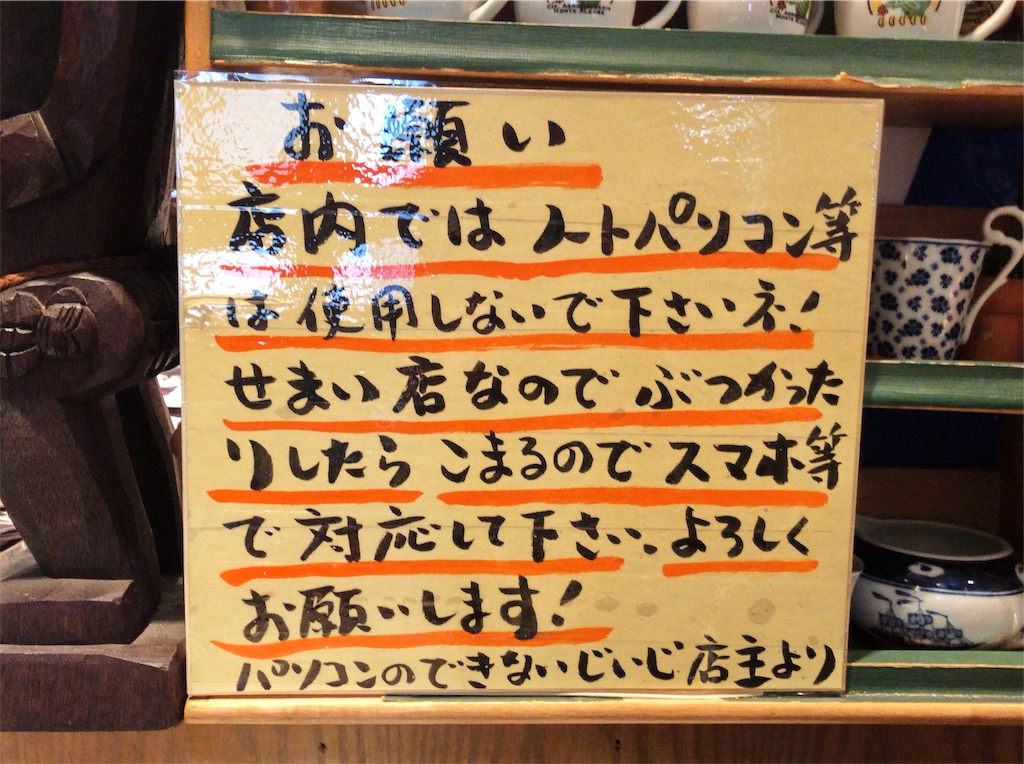 CIA. AGROPECUARIA
MONTE ALEGRE
お願い
店内ではノートパソコン等
は使用しないで下さいネ!
せまい店なのでぶつかった
りしたらこまるのでスマホ等
で対応して下さい、よろしく
お願いします!
パソコンのできないじいじ店主より